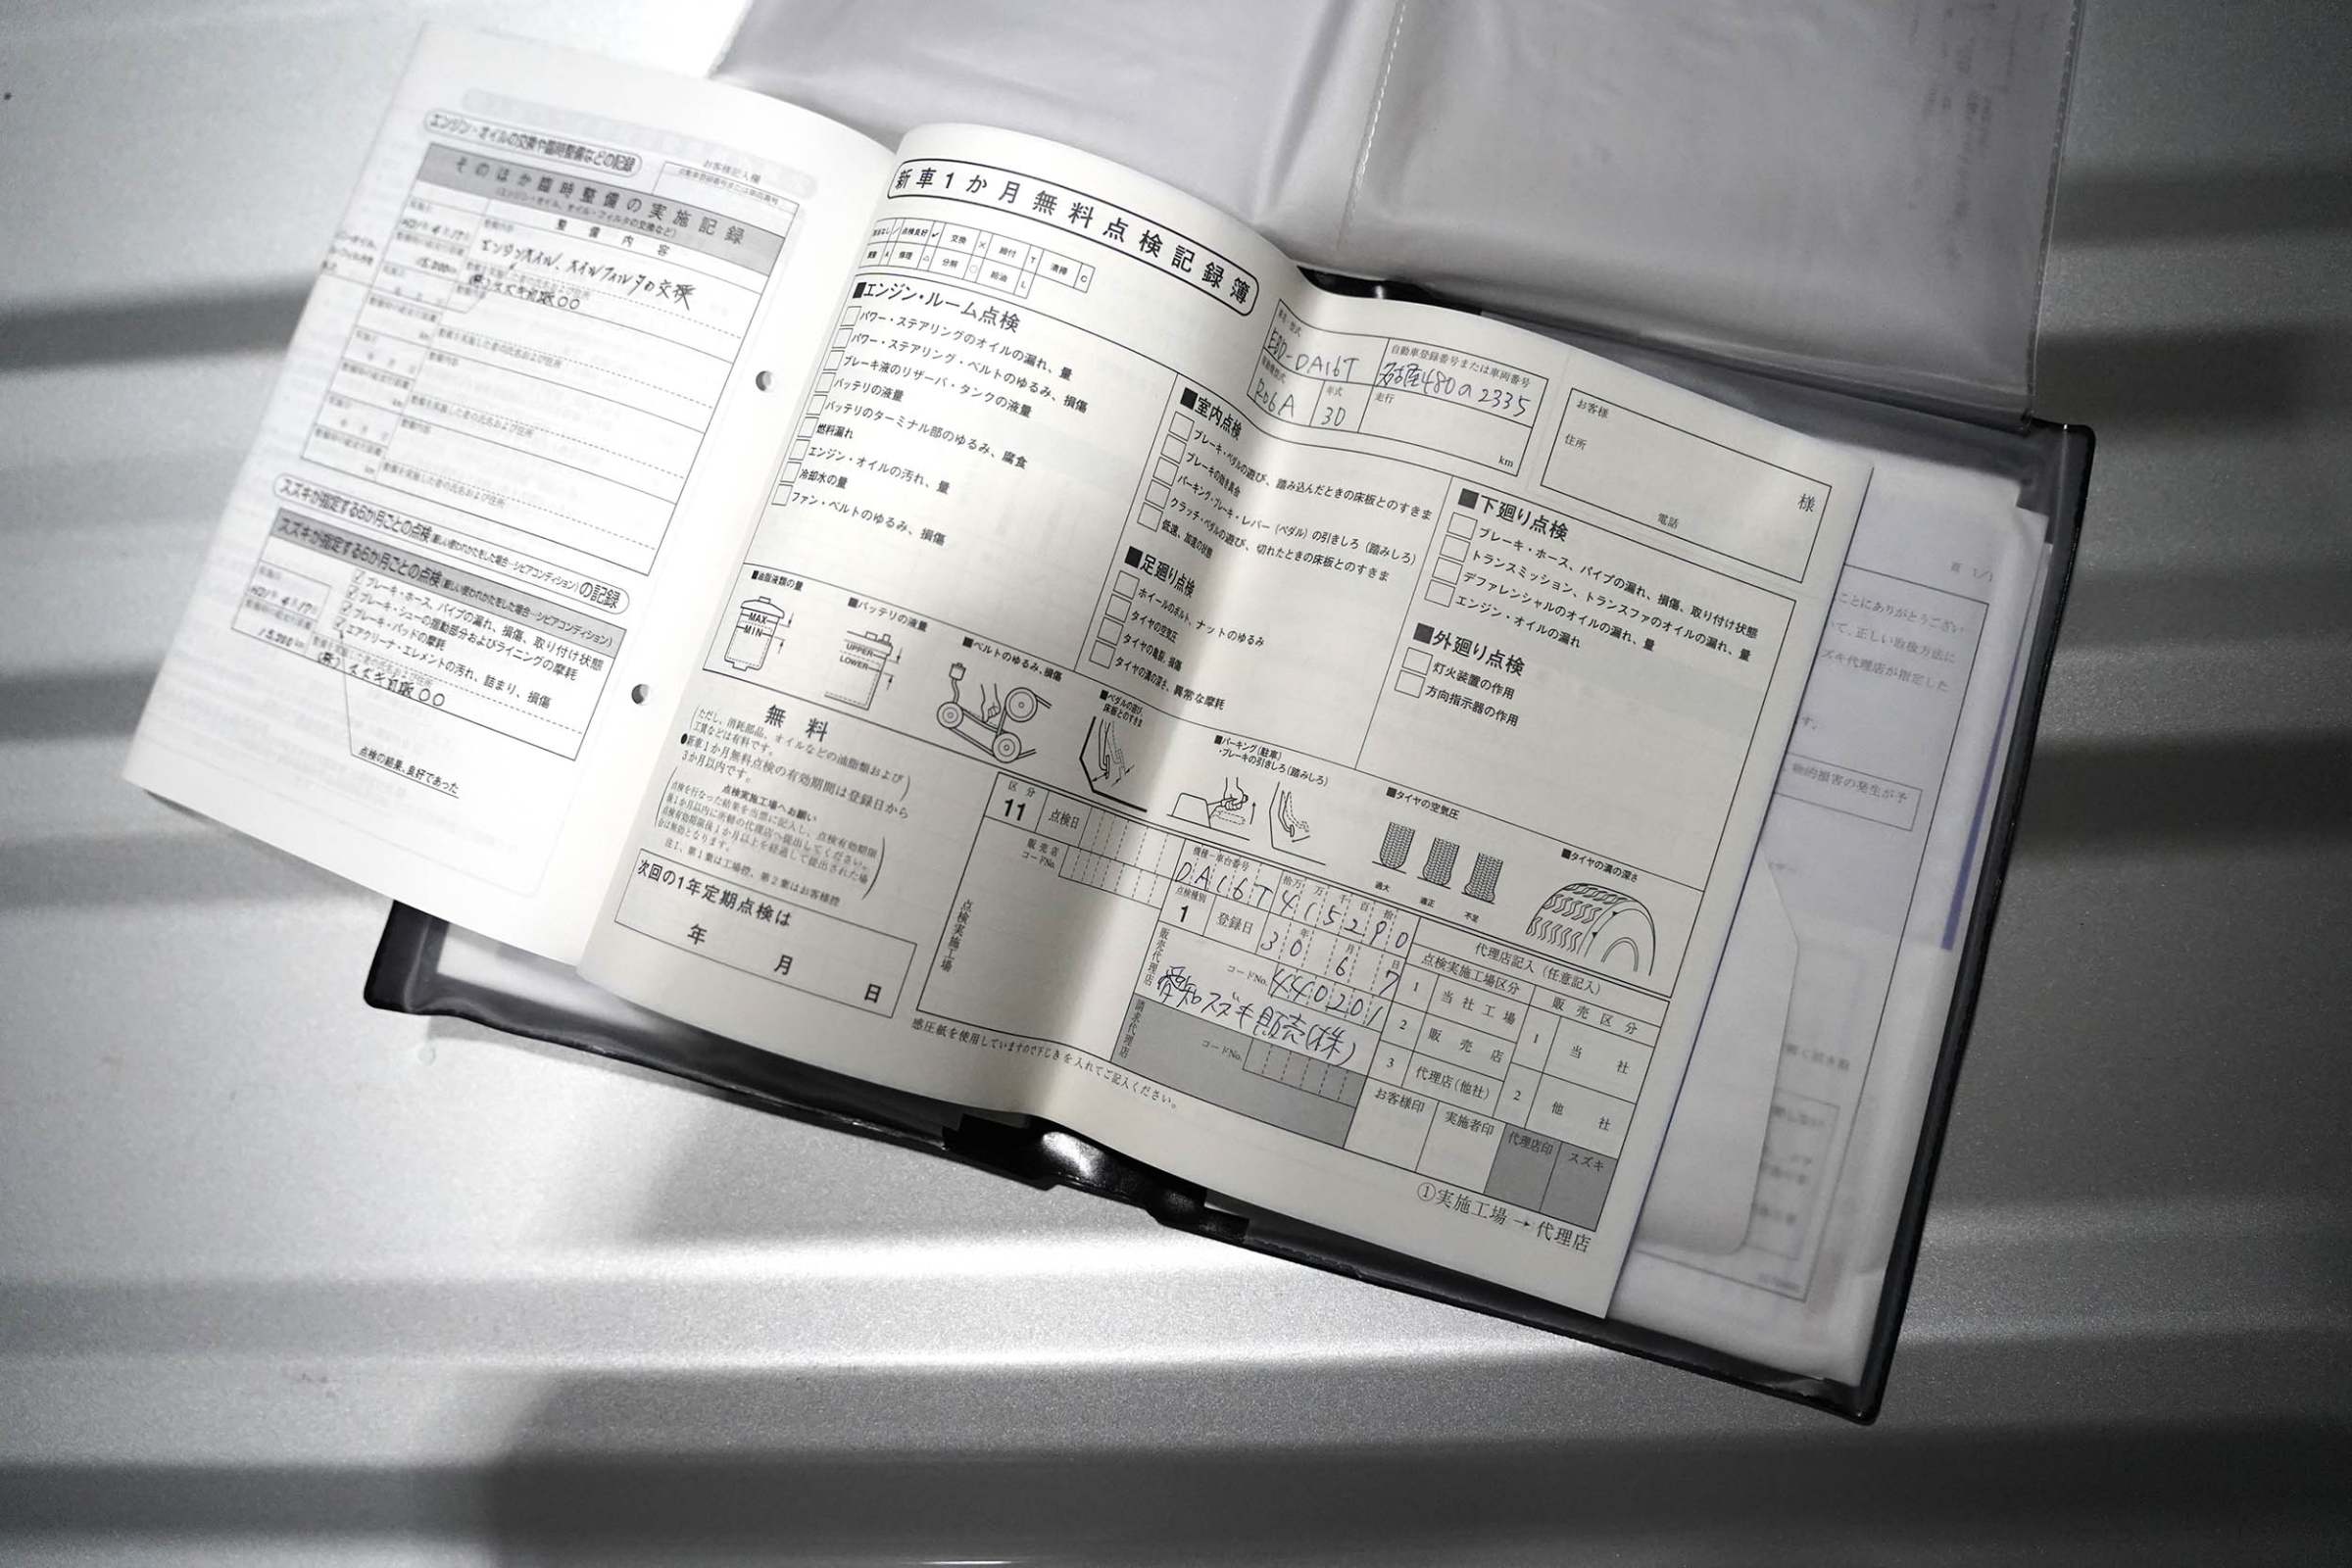 エンジン・オイルの交換や臨時整備などの記録
お客様記入欄
自動車登録番号または車両番号
そのほか臨時整備の実施記録
(エンジン・オイル、オイル・フィルタの交換など)
整備内容
エンジンオイル、オイルフィルタの交換
15,000km
(株)スズキ自販○○
整備を実施した者の氏名および住所
整備内容
km
整備を実施した者の氏名および住所
整備内容
km
整備を実施した者の氏名および住所
整備内容
km
整備を実施した者の氏名および住所
スズキが指定する6か月ごとの点検(厳しい使われかたをした場合…シビアコンディション)の記録
スズキが指定する6か月ごとの点検(厳しい使われかたをした場合…シビアコンディション)
ブレーキ・ホース、パイプの漏れ、損傷、取り付け状態
ブレーキ・シューの摺動部分およびライニングの摩耗
ブレーキ・パッドの摩耗
エアクリーナ・エレメントの汚れ、詰まり、損傷
15,000km
(株)スズキ自販○○
点検の結果、良好であった
新車1か月無料点検記録簿
点検良好 ✓ 交換 × 締付 T 清掃 C
調整 A 修理 △ 分解 ○ 給油 L
車名・型式
EBD-DA16T
自動車登録番号または車両番号
名古屋480の2335
原動機型式
R06A
年式
30
走行
km
お客様
住所
様
電話
■エンジン・ルーム点検
パワー・ステアリングのオイルの漏れ、量
パワー・ステアリング・ベルトのゆるみ、損傷
ブレーキ液のリザーバ・タンクの液量
バッテリの液量
バッテリのターミナル部のゆるみ、腐食
燃料漏れ
エンジン・オイルの汚れ、量
冷却水の量
ファン・ベルトのゆるみ、損傷
■室内点検
ブレーキ・ペダルの遊び、踏み込んだときの床板とのすきま
ブレーキの効き具合
パーキング・ブレーキ・レバー(ペダル)の引きしろ(踏みしろ)
クラッチ・ペダルの遊び、切れたときの床板とのすきま
低速、加速の状態
■足廻り点検
ホイールのボルト、ナットのゆるみ
タイヤの空気圧
タイヤの亀裂、損傷
タイヤの溝の深さ、異常な摩耗
■下廻り点検
ブレーキ・ホース、パイプの漏れ、損傷、取り付け状態
トランスミッション、トランスファのオイルの漏れ、量
デファレンシャルのオイルの漏れ、量
エンジン・オイルの漏れ
■外廻り点検
灯火装置の作用
方向指示器の作用
■油脂液類の量
MAX
MIN
■バッテリの液量
UPPER
LOWER
■ベルトのゆるみ、損傷
■ペダルの遊び、
床板とのすきま
■パーキング(駐車)
・ブレーキの引きしろ(踏みしろ)
■タイヤの空気圧
過大
適正
不足
■タイヤの溝の深さ
無料
(ただし、消耗部品、オイルなどの油脂類および
工賃などは有料です。)
●新車1か月無料点検の有効期間は登録日から
3か月以内です。
点検実施工場へお願い
点検を行なった結果を当票に記入し、点検有効期限
後1か月以内に所轄の代理店へ提出してください。
点検有効期限後1か月以上を経過して提出された場
合は無効となります。
注1、第1葉は工場控、第2葉はお客様控
次回の1年定期点検は
年
月
日
区分
11
点検日
販売店
コードNo.
点検実施工場
機種-車台番号
DA16T
拾万 万 千 百 拾
415290
点検種別
1
登録日
年 月 日
30 6 7
販売代理店
コードNo.
440201
愛知スズキ販売(株)
請求代理店
コードNo.
代理店記入(任意記入)
点検実施工場区分
販売区分
1 当社工場
2 販売店
3 代理店(他社)
1 当社
2 他社
お客様印
実施者印
代理店印
スズキ
感圧紙を使用していますので下じきを入れてご記入ください。
①実施工場→代理店
頁 1/1